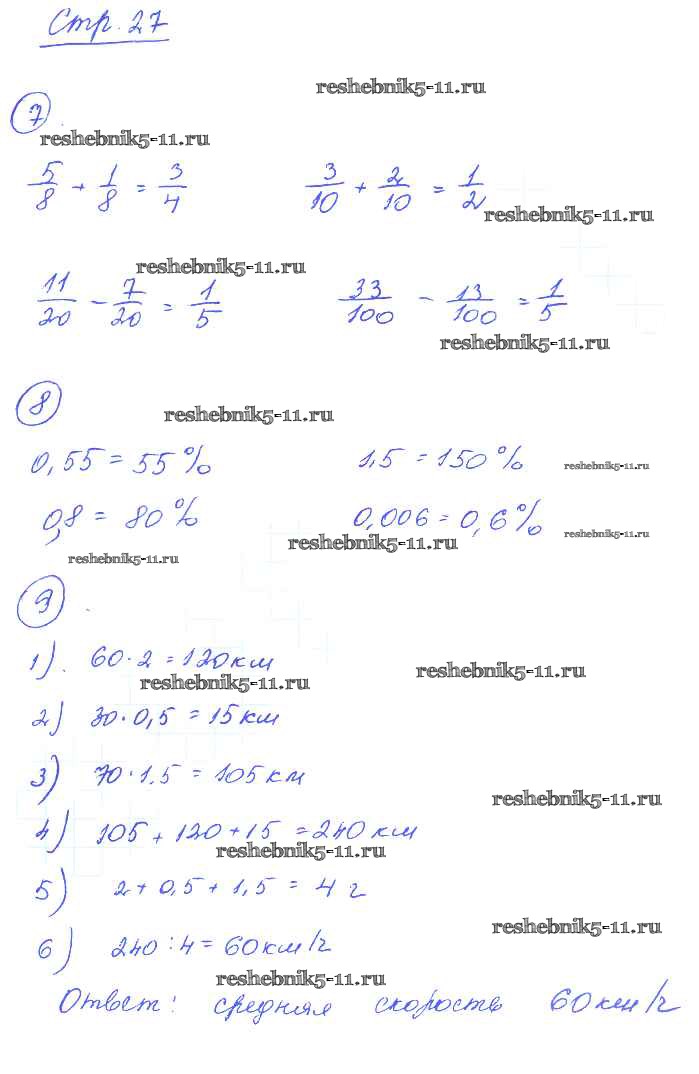 Стр. 27
reshebnik5-11.ru
7
reshebnik5-11.ru
5/8 + 1/8 = 3/4 3/10 + 2/10 = 1/2
reshebnik5-11.ru
reshebnik5-11.ru
11/20 - 7/20 = 1/5 33/100 - 13/100 = 1/5
reshebnik5-11.ru
8
reshebnik5-11.ru
0,55 = 55% 1,5 = 150%
reshebnik5-11.ru
0,8 = 80% 0,006 = 0,6%
reshebnik5-11.ru
reshebnik5-11.ru
reshebnik5-11.ru
9
1) 60·2 = 120 км
reshebnik5-11.ru
reshebnik5-11.ru
2) 30·0,5 = 15 км
3) 70·1,5 = 105 км
reshebnik5-11.ru
4) 105 + 120 + 15 = 240 км
reshebnik5-11.ru
5) 2 + 0,5 + 1,5 = 4 г
reshebnik5-11.ru
6) 240 : 4 = 60 км/г
reshebnik5-11.ru
Ответ: средняя скорость 60 км/г